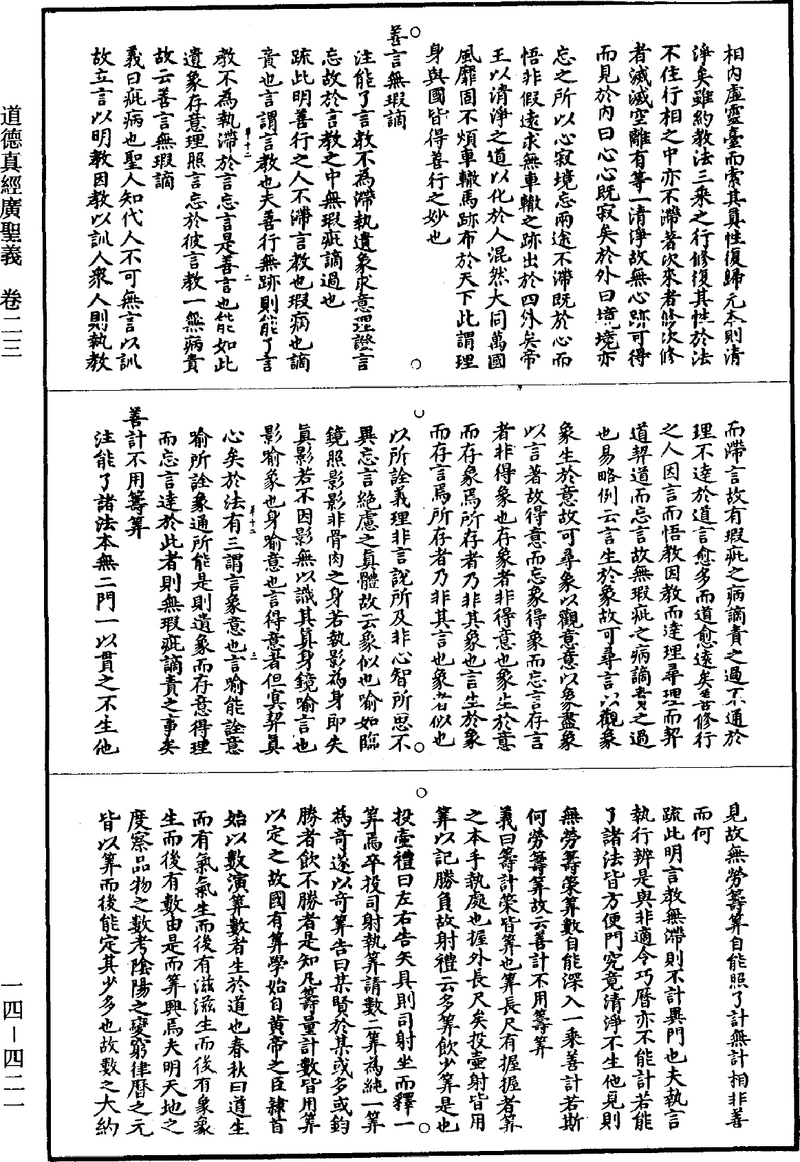 道德真經廣聖義　卷二三
一四—四二一
相內虛靈臺而索其真性復歸元本則清
淨矣雖約教法三乘之行修復其性於法
不住行相之中亦不滯著次來者修次修
者滅滅空離有等一清淨故無心跡可得
而見於內曰心心既寂矣於外曰境境亦
忘之所以心寂境忘兩途不滯既於心而
悟非假遠求無車轍之跡出於四外矣帝
王以清淨之道以化於人混然大同萬國
風靡固不煩車轍馬跡布於天下此謂理
身與國皆得善行之妙也
善言無瑕讁
注能了言教不為滯執遺象求意理證言
忘故於言教之中無瑕疵讁過也
疏此明善行之人不滯言教也瑕病也讁
責也言謂言教也夫善行無跡則能了言
教不為執滯於言忘言是善言也能如此
遺象存意理照言忘於彼言教一無病責
故云善言無瑕讁
義曰疵病也聖人知代人不可無言以訓
故立言以明教因教以訓人衆人則執教
而滯言故有瑕疵之病讁責之過不通於
理不達於道言愈多而道愈遠矣善修行
之人因言而悟教因教而達理尋理而契
道契道而忘言故無瑕疵之病讁責之過
也易略例云言生於象故可尋言以觀象
象生於意故可尋象以觀意意以象盡象
以言著故得意而忘象得象而忘言存言
者非得象也存象者非得意也象生於意
而存象焉所存者乃非其象也言生於象
而存言焉所存者乃非其言也象者似也
以所詮義理非言說所及非心智所思不
異忘言絕慮之真體故云象似也喻如臨
鏡照影影非骨肉之身若執影為身即失
真影若不因影無以識其真身鏡喻言也
影喻象也身喻意也言得意者但冥契真
心矣於法有三謂言象意也言喻能詮意
喻所詮象通所能是則遺象而存意得理
而忘言達於此者則無瑕疵讁責之事矣
善計不用籌筭
注能了諸法本無二門一以貫之不生他
見故無勞籌筭自能照了計無計相非善
而何
疏此明言教無滯則不計異門也夫執言
執行辨是與非適令巧曆亦不能計若能
了諸法皆方便門究竟清淨不生他見則
無勞籌策筭數自能深入一乘善計若斯
何勞籌筭故云善計不用籌筭
義曰籌計策皆筭也筭長尺有握握者筭
之本手執處也握外長尺矣投壺射皆用
筭以記勝負故射禮云多筭飲少筭是也
投壺禮曰左右告矢具則司射坐而釋一
筭焉卒投司射執筭請數二筭為純一筭
為奇遂以奇筭告曰某賢於某或多或鈞
勝者飲不勝者是知凡籌量計數皆用筭
以定之故國有筭學始自黃帝之臣隸首
始以數演筭數者生於道也春秋曰道生
而有氣氣生而後有滋滋生而後有象象
生而後有數由是而筭興焉夫明天地之
度察品物之數考陰陽之變窮律曆之元
皆以筭而後能定其少多也故數之大約